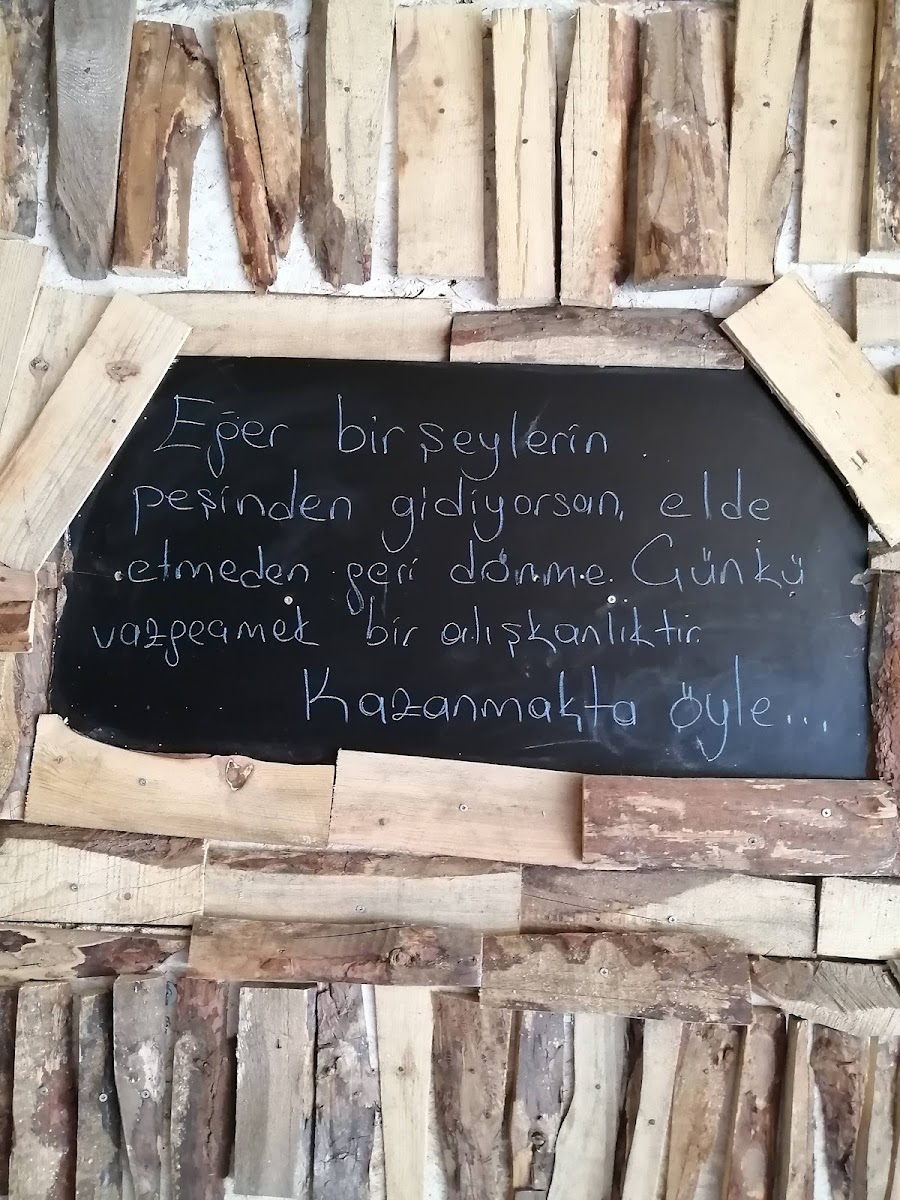 Eğer bir şeylerin
peşinden gidiyorsan, elde
etmeden geri dönme. Günkü
vazgeamek bir alışkanlıktır.
Kazanmakta öyle...